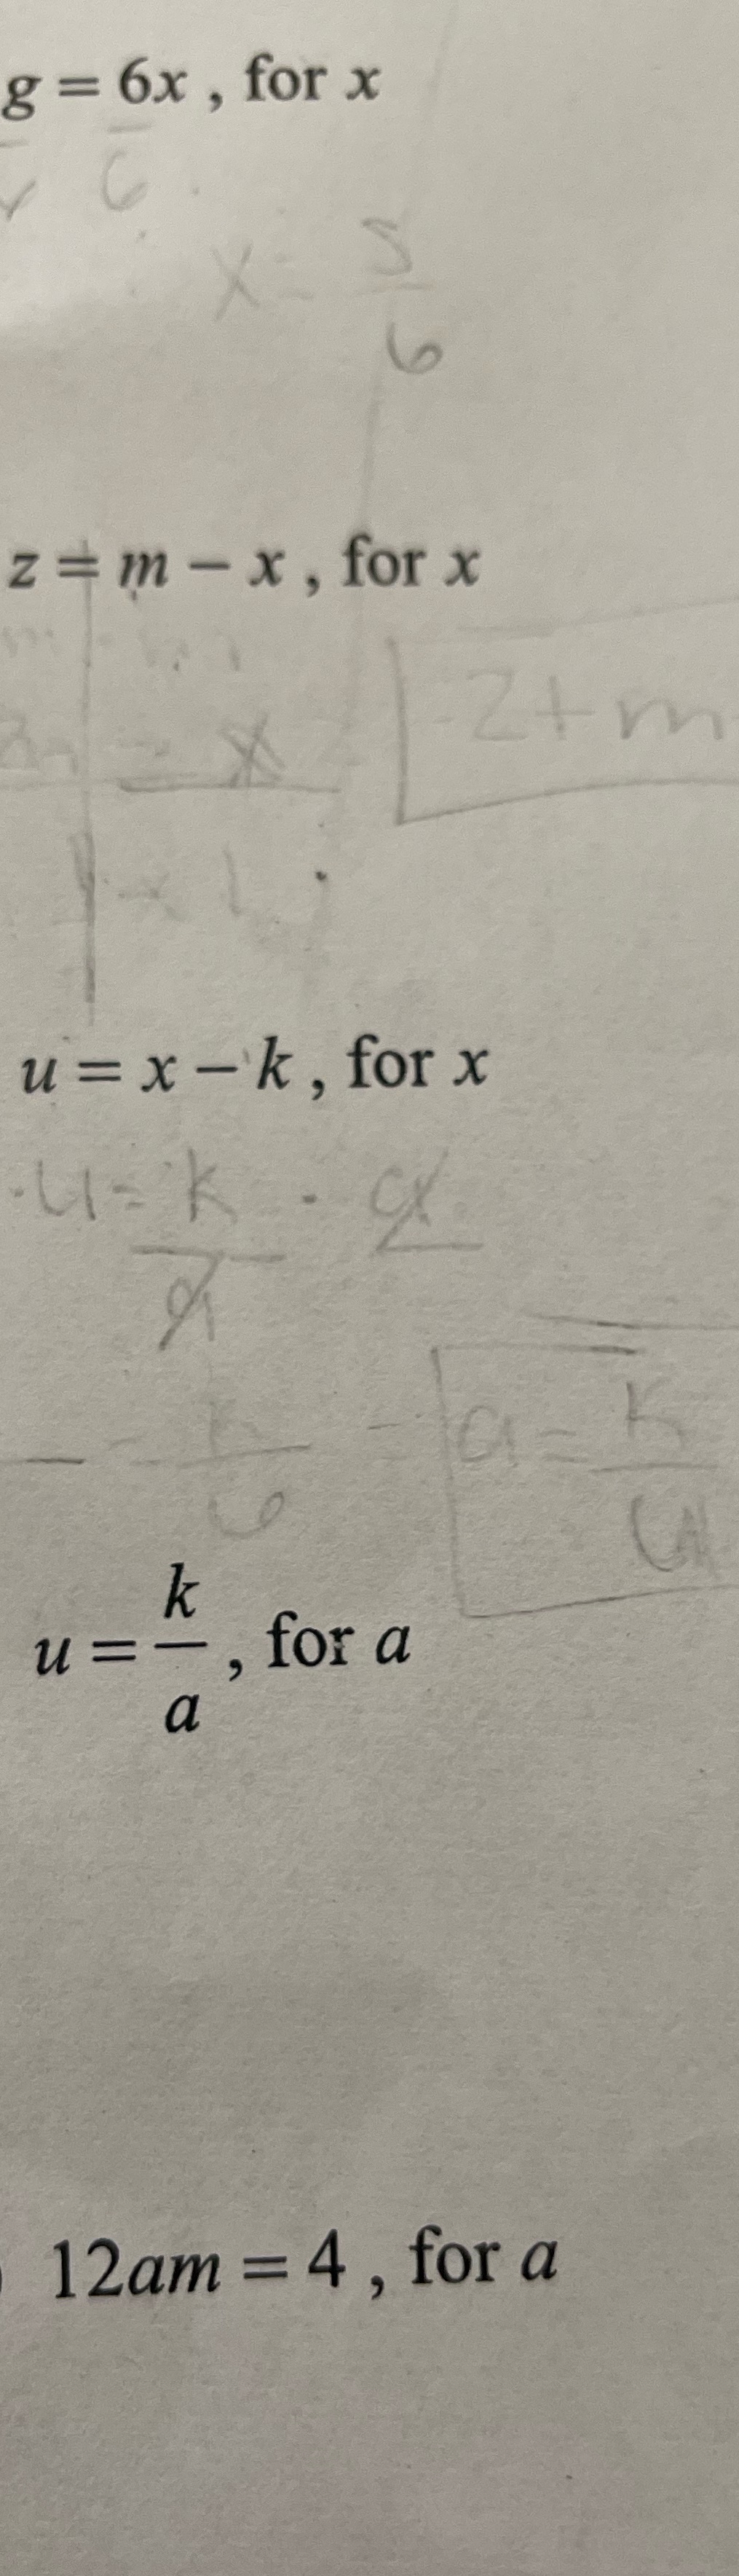 g = 6x , for x
6
x = 5/6
z = m – x , for x
x
-z + m
u = x – k , for x
u = k/a · a
k/6
a = k/u
u = k/a , for a
12am = 4 , for a